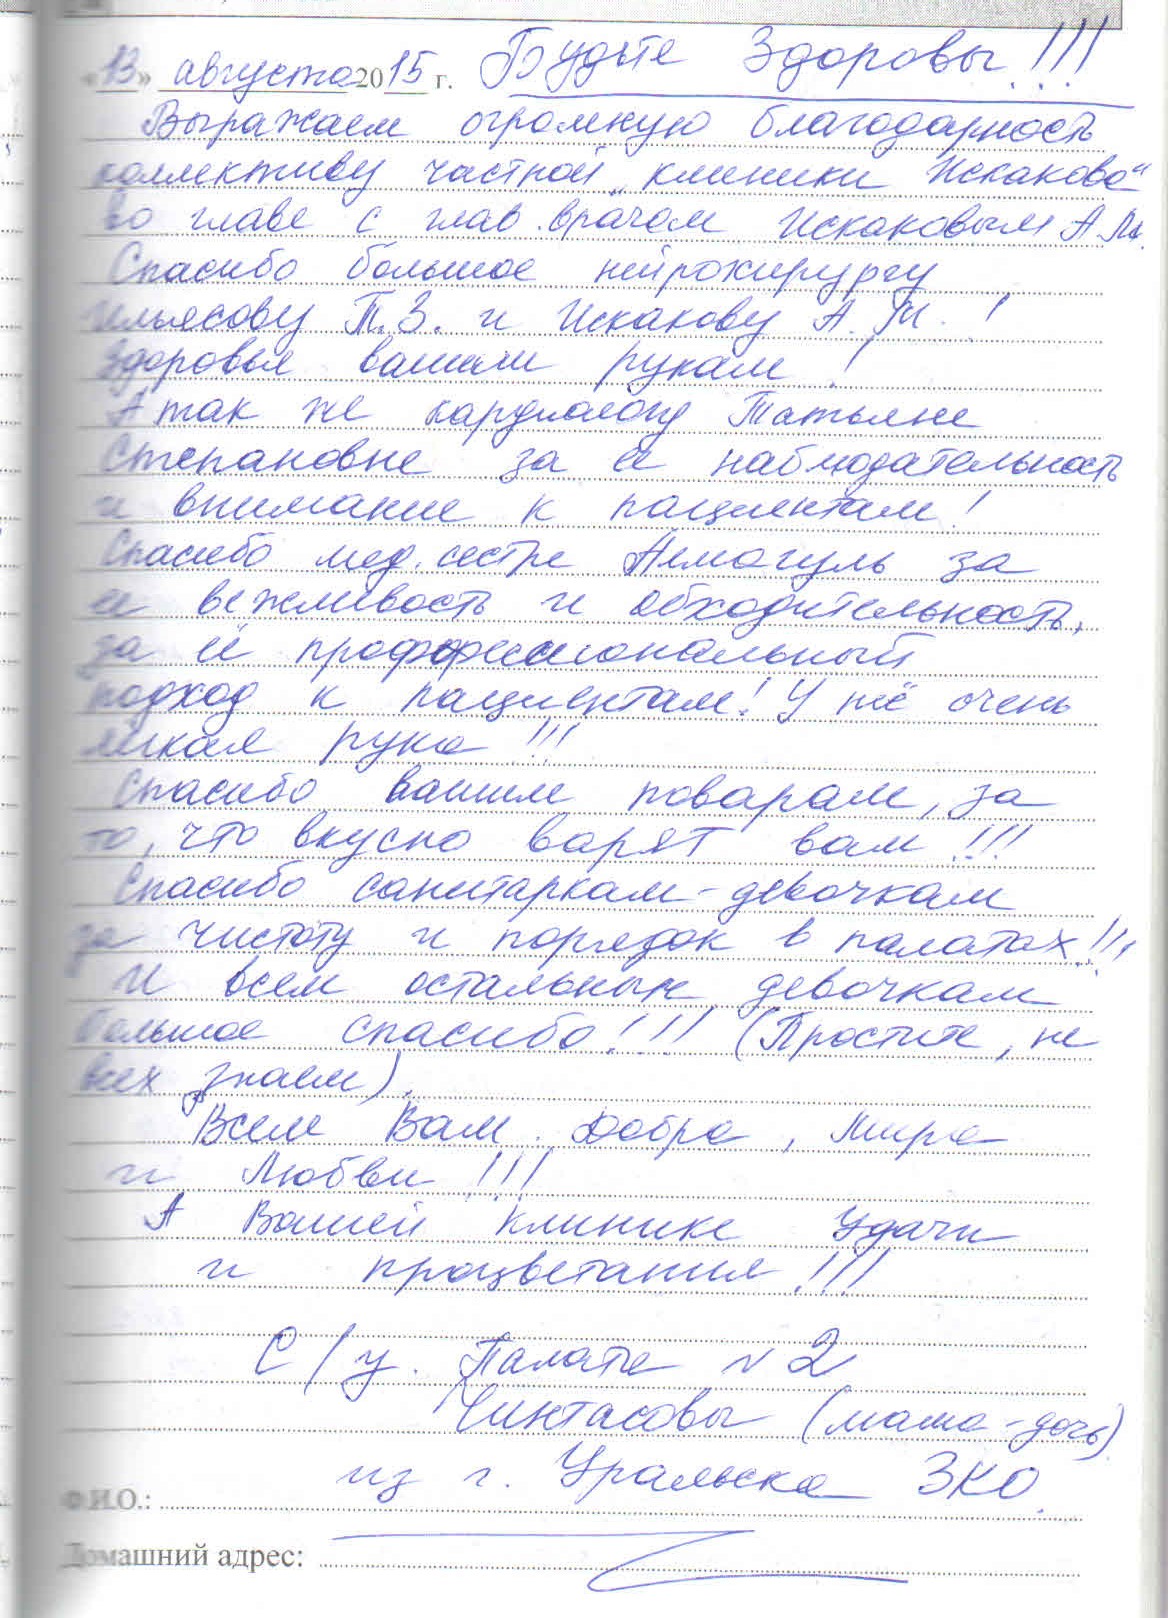 «13» августа 2015 г. Будьте Здоровы!!!
Выражаем огромную благодарность
коллективу частной „клиники Искакова“
во главе с глав.врачом Искаковым А.М.
Спасибо большое нейрохирургу
Ильясову Т.З. и Искакову А.М. !
Здоровья вашим рукам !
А так же кардиологу Татьяне
Степановне за её наблюдательность
и внимание к пациентам!
Спасибо мед.сестре Алмагуль за
её вежливость и обходительность,
за её профессиональный
подход к пациентам! У неё очень
лёгкая рука !!!
Спасибо вашим поварам, за
то, что вкусно варят вам !!!
Спасибо санитаркам-девочкам
за чистоту и порядок в палатах!!!
И всем остальным девочкам
большое спасибо!!! (Простите, не
всех знаем).
Всем Вам Добра, Мира
и Любви !!!
А Вашей клинике Удачи
и процветания!!!
С/у. Палата №2
Чинтасовы (мама-дочь)
из г. Уральска ЗКО.
Ф.И.О.:
Домашний адрес: